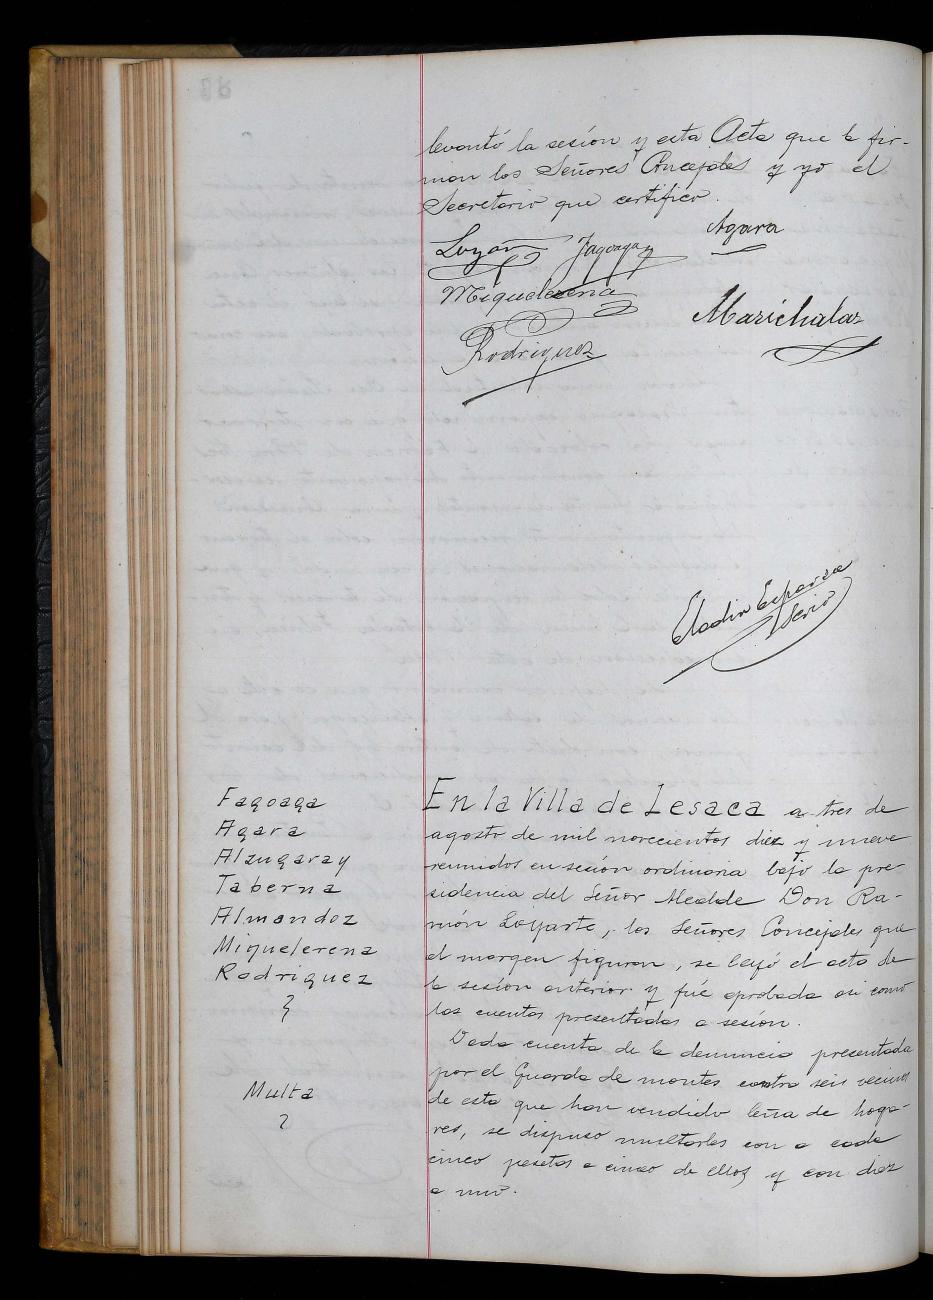 levantó la sesión y esta Acta que la fir-
man los Señores Concejales y yo el
Secretario que certifico.
Agara
Loyar Fagoaga
Miquelerena
Marichalar
Rodriguez
Eladio Esparza
Serio
Fagoaga
Agara
Alzugaray
Taberna
Almandoz
Miquelerena
Rodriguez
Multa
En la Villa de Lesaca a tres de
agosto de mil novecientos diez y nueve
reunidos en sesión ordinaria bajo la pre-
sidencia del Señor Alcalde Don Ra-
món Loyarte, los Señores Concejales que
al margen figuran, se leyó el acta de
la sesión anterior y fué aprobada asi como
las cuentas presentadas a sesión.
Dada cuenta de la denuncia presentada
por el Guarda de montes contra seis vecinos
de esta que han vendido leña de hoga-
res, se dispuso multarles con a cada
cinco pesetas a cinco de ellos y con diez
a uno.